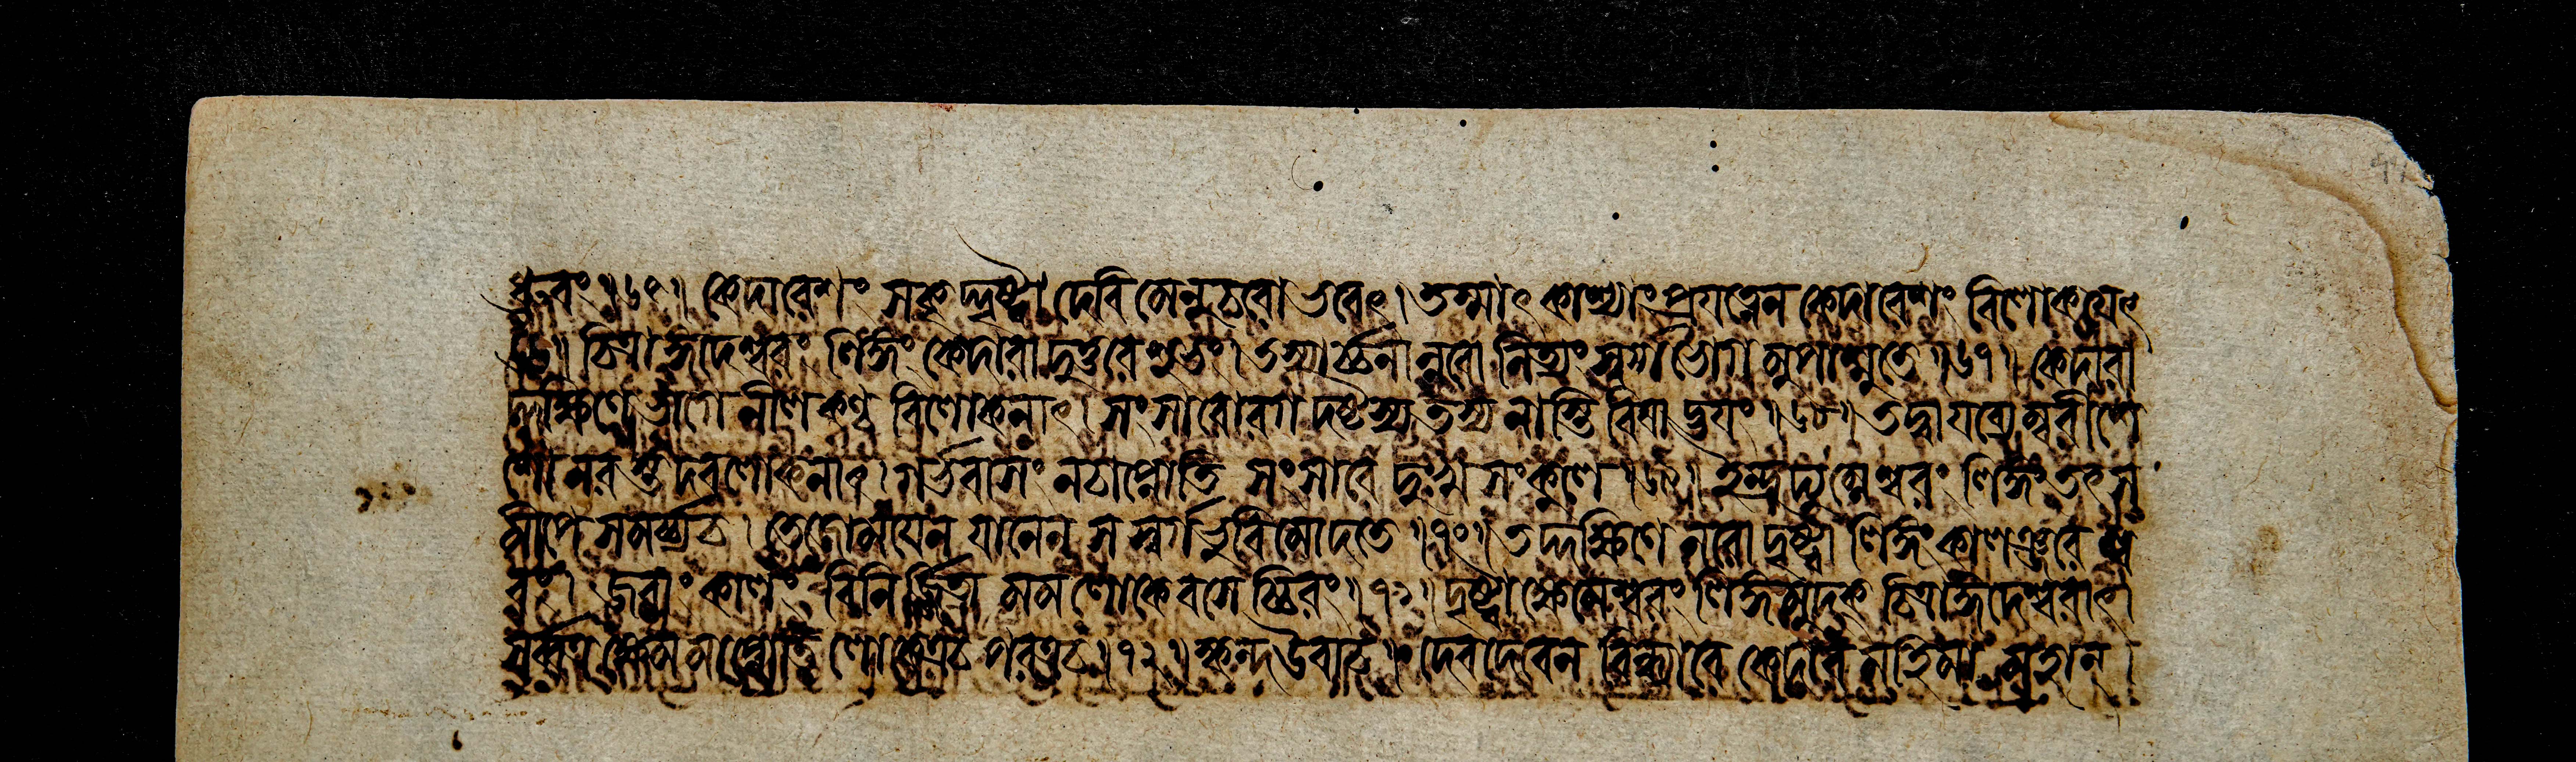 ধ্রুবং ॥ ৬৫ ॥ কেদারেশং সকৃদ্দৃষ্ট্বা দেবি মেনুচরো ভবেৎ । তস্মাৎ কাশ্যাং প্রযত্নেন কেদারেশং বিলোকযেৎ
॥ ৬৬ ॥ চিত্রাঙ্গদেশ্বরং লিঙ্গং কেদারাদুত্তরে শুভং । তস্যার্চ্চনান্নরো নিত্যং স্বর্গভোগানুপাশ্নুতে ॥ ৬৭ ॥ কেদারা
দ্দক্ষিণে ভাগে নীলকণ্ঠ বিলোকনাৎ । সংসারোরগদষ্টস্য তস্য নাস্তি বিষাদ্ভযং ॥ ৬৮ ॥ তদ্বাযব্যেম্বরীষে
শো নরস্তদবলোকনাৎ । গর্ভবাসং নচাপ্নোতি সংসারে দুঃখসংকুলে ॥ ৬৯ ॥ ইন্দ্রদ্যুম্নেশ্বরং লিঙ্গং তৎস
মীপে সমর্চ্চ্যচ । তেজোমযেন যানেন স স্বর্গভুবি মোদতে ॥ ৭০ ॥ তদ্দক্ষিণে নরো দৃষ্ট্বা লিঙ্গং কালঞ্জরেশ্ব
রং । জরাং কালং বিনির্জ্জিত্য মম লোকে বসেচ্চিরং ॥ ৭১ ॥ দৃষ্ট্বা ক্ষেমেশ্বরং লিঙ্গমুদক্ চিত্রাঙ্গদেশ্বরাৎ ।
সর্ব্বত্র ক্ষেমমাপ্নোতি লোকেত্রচ পরত্রচ ॥ ৭২ ॥ স্কন্দ উবাচ ॥ দেবদেবেন বিন্ধ্যারে কেদারমহিমা মহান্ ।